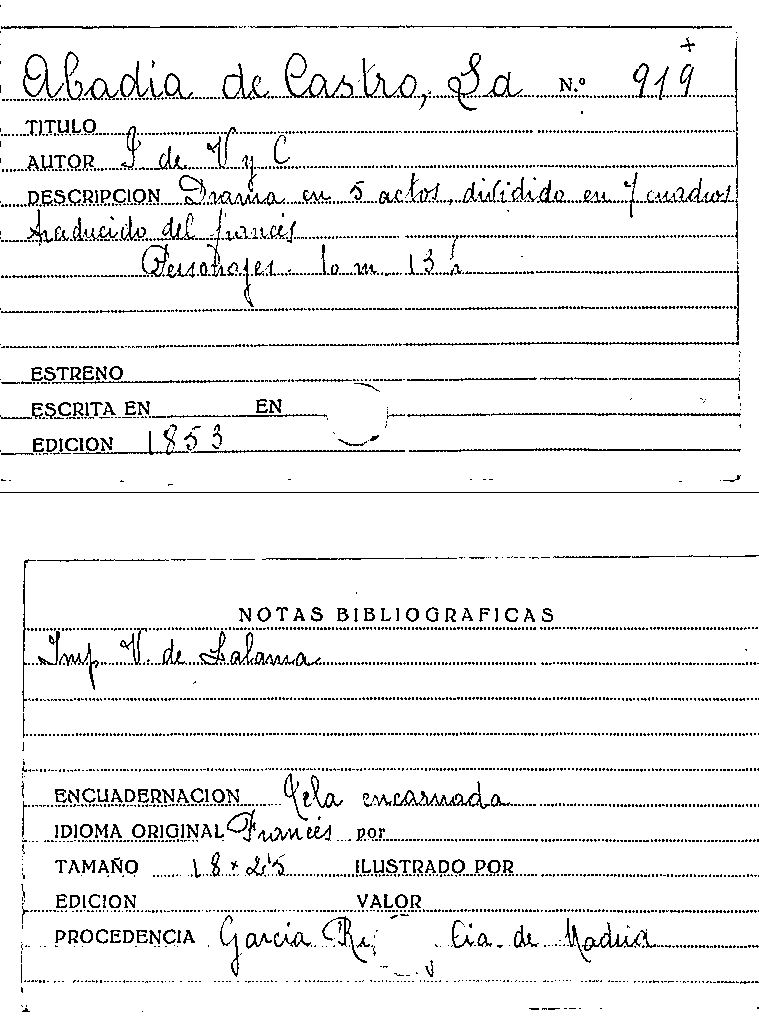 Abadia de Castro, La N.º 919 +
TITULO
AUTOR I de V y C
DESCRIPCION Drama en 5 actos, dividido en 7 cuadros
traducido del francés
Personajes. 10 m 13 h
ESTRENO
ESCRITA EN EN
EDICION 1853
NOTAS BIBLIOGRAFICAS
Imp V. de Lalama
ENCUADERNACION Tela encarnada
IDIOMA ORIGINAL Francés por
TAMAÑO 18 x 25 ILUSTRADO POR
EDICION VALOR
PROCEDENCIA Garcia Cia. de Madrid